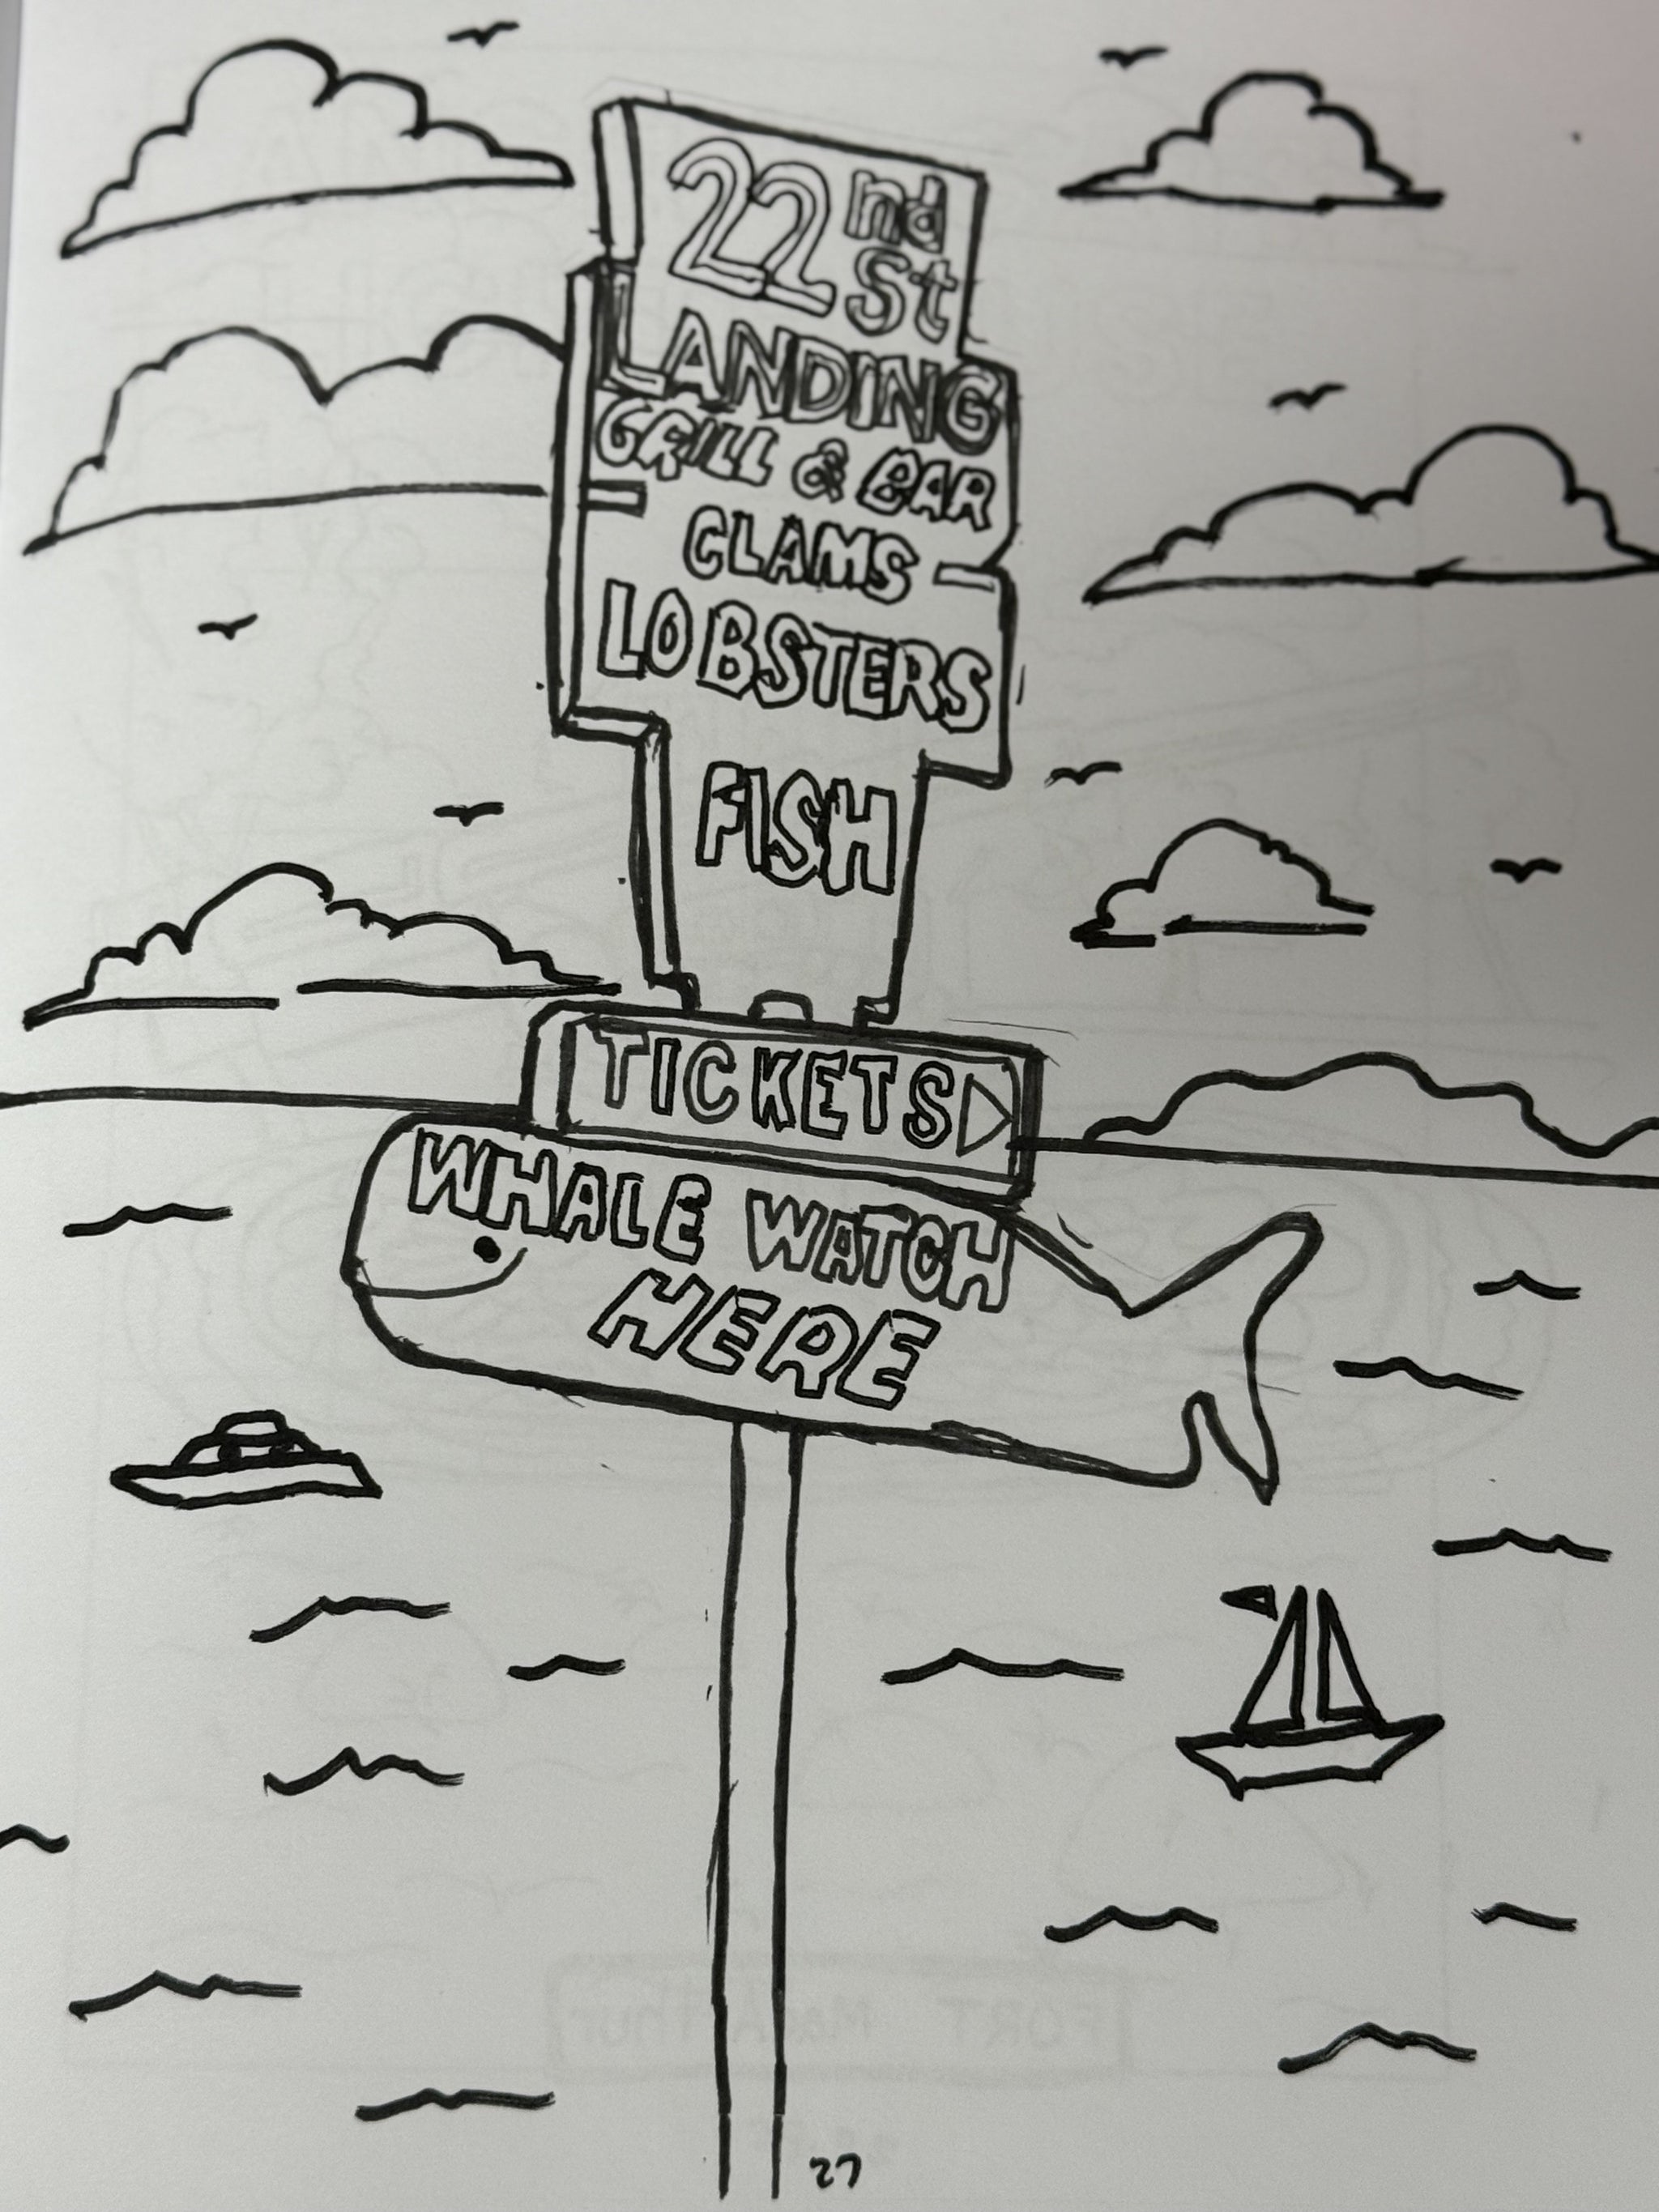 22nd
St
LANDING
GRILL & BAR
CLAMS
LOBSTERS
FISH
TICKETS
WHALE WATCH
HERE
27
FORT MacArthur